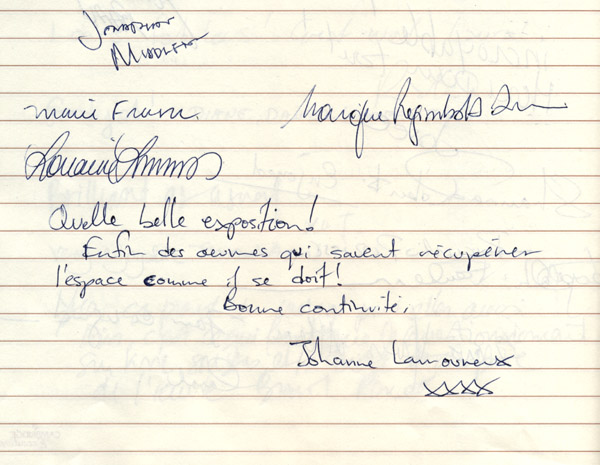 Jonathan
Middleton
Marie France
Monique Régimbald
Quelle belle exposition!
Enfin des oeuvres qui savent récupérer
l'espace comme il se doit!
Bonne continuité,
Johanne Lamoureux
xxxx